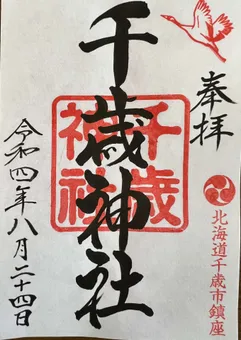 奉拝
北海道千歳市鎮座
千歳神社
千歳
神社
令和四年八月二十四日